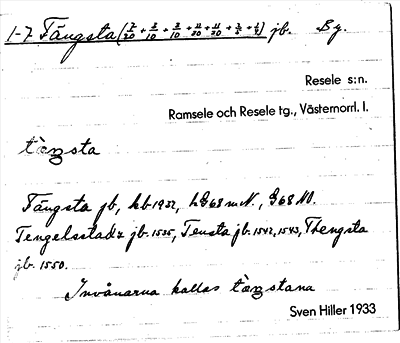 1-7 Tängsta (7/20 + 3/10 + 3/10 + 11/20 + 11/20 + 3/5 + 1/5) jb. By.
Resele s:n.
Ramsele och Resele tg., Västernorrl. l.
Tängsta jb, kb 1932,
Tengelsstadz jb. 1535, Tensta jb. 1542, 1543, Thengsta
jb. 1550.
Invånarna kallas
Sven Hiller 1933